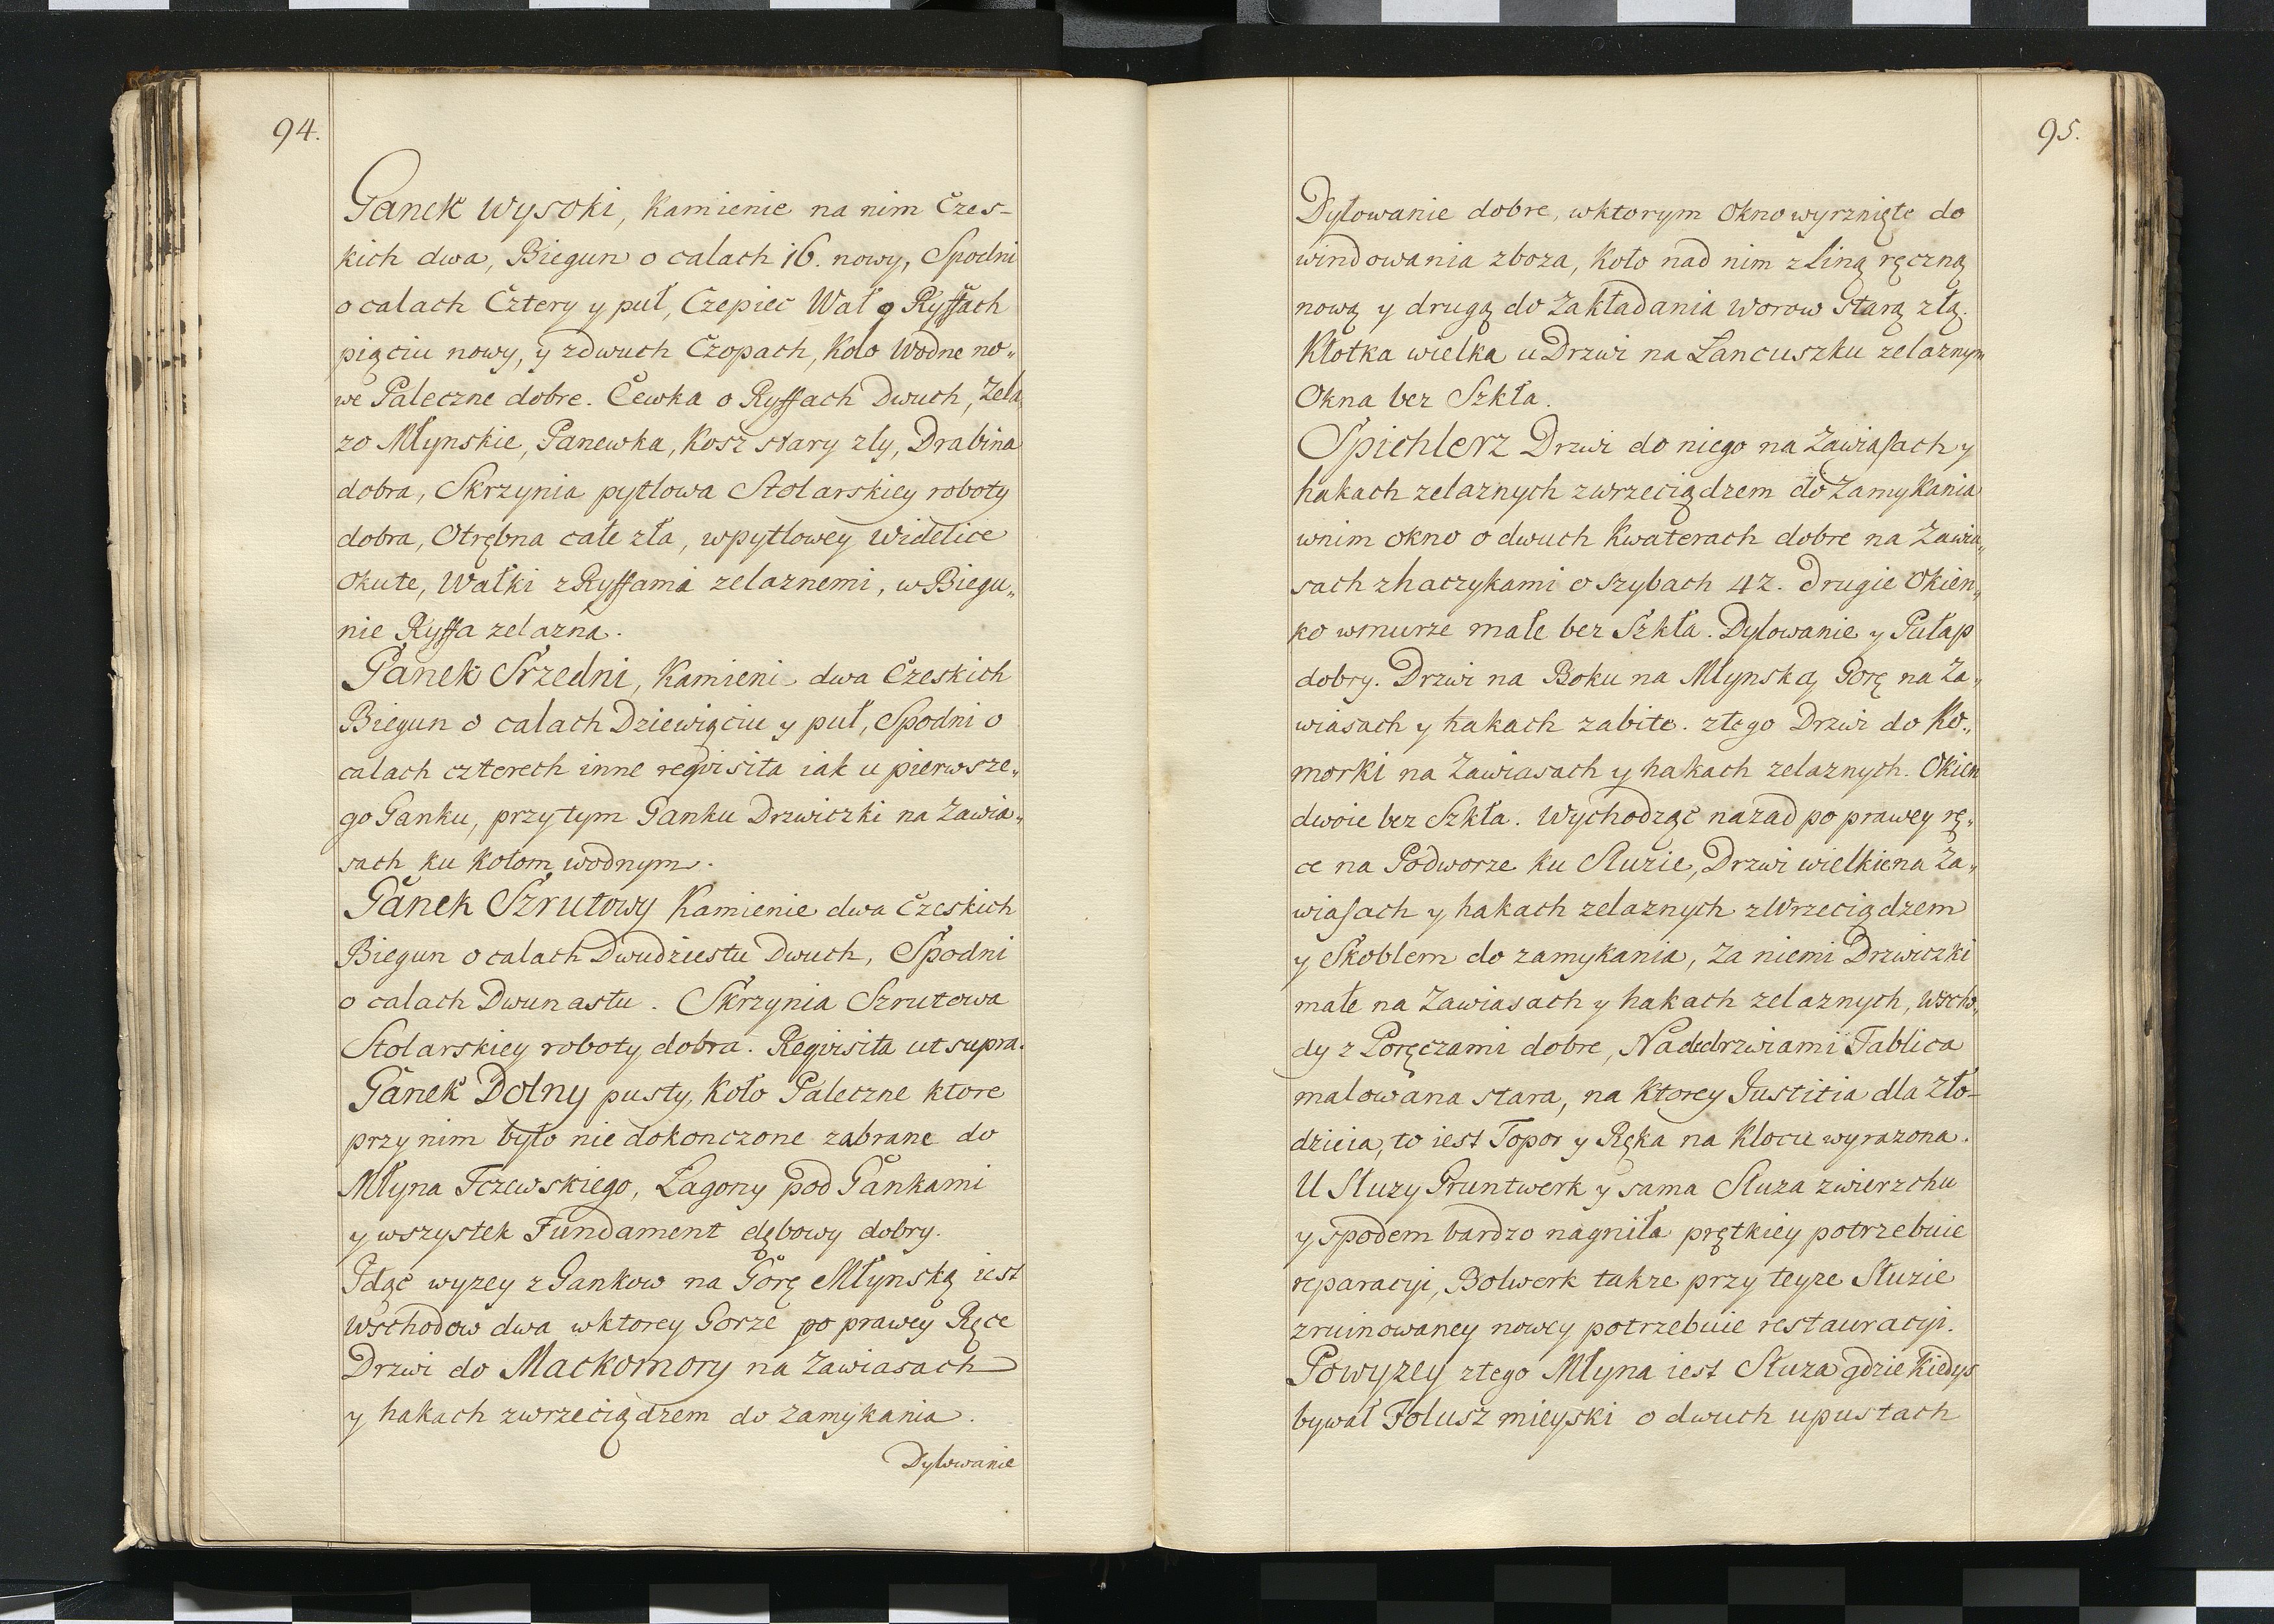 94.
Ganek Wysoki, Kamienie na nim Czes-
kich dwa, Biegun o calach 16. nowy, Spodni
o calach Cztery y puł, Czepiec Wał o Ryffach
pięciu nowy, y zdwuch Czopach, Koło Wodne no„
we Paleczne dobre. Cewka o Ryffach Dwuch, Zela
zo Młynskie, Panewka, Kosz stary zły, Drabina
dobra, Skrzynia pytlowa Stolarskiey roboty
dobra, Otrębna cale zła, wpytlowey Widelice
Okute, Wałki z Ryffami zelaznemi, w Biegu„
nie Ryffa zelazna.
Ganek Srzedni, Kamieni dwa Czeskich
Biegun o calach Dziewięciu y puł, Spodni o
calach czterech inne reqvisita iak u pierwsze„
go Ganku, przy tym Ganku Drzwiczki na Zawia„
sach ku Kołom wodnym.
Ganek Szrutowy Kamienie dwa Czeskich
Biegun o calach Dwudziestu Dwuch, Spodni
o calach Dwunastu. Skrzynia Szrutowa
Stolarskiey roboty dobra. Reqvisita ut supra.
Ganek Dolny pusty, Koło Paleczne ktore
przy nim było nie dokonczone zabrane do
Młyna Tczewskiego, Łagony pod Gankami
y wszystek Fundament dębowy dobry.
Idąc wyzey z Gankow na Gorę Młynską iest
Wschodow dwa wktorey Gorze po prawey Ręce
Drzwi do Mackomory na Zawiasach
y hakach zwrzeciądzem do zamykania.
Dylowanie
95.
Dylowanie dobre, wktorym Okno wyrznięte do
windowania zboza, Koło nad nim z Liną ręczną
nową y drugą do Zakładania Worow starą złą.
Kłotka wielka u Drzwi na Łancuszku zelaznym
Okna bez Szkła.
Spichlerz Drzwi do niego na Zawiasach y
hakach zelaznych zwrzeciądzem do Zamykania
wnim okno o dwuch Kwaterach dobre na Zawia„
sach zhaczykami o szybach 42. drugie Okien„
ko wmurze małe bez Szkła. Dylowanie y Pułap
dobry. Drzwi na Boku na Młynską Gorę na Za„
wiasach y hakach zabite. ztego Drzwi do Ko„
morki na Zawiasach y hakach zelaznych. Okien
dwoie bez Szkła. Wychodząc nazad po prawey rę„
ce na Podworze ku Sluzie, Drzwi wielkie na Za„
wiasach y hakach zelaznych zWrzeciądzem
y Skoblem do zamykania, za niemi Drzwiczki
małe na Zawiasach y hakach zelaznych, Wscho„
dy z Poręczami dobre, Nadedrzwiami Tablica
malowana stara, na Ktorey Justitia dla Zło-
dzieia, to iest Topor y Ręka na Klocu wyrazona.
U Sluzy Gruntwerk y sama Sluza zwierzchu
y spodem bardzo nagniła prętkiey potrzebuie
reparacyi, Bolwerk takze przy teyze Sluzie
zruinowaney nowey potrzebuie restauracyi.
Powyzey ztego Młyna iest Sluza gdzie Kiedys
bywał Folusz mieyski o dwuch upustach